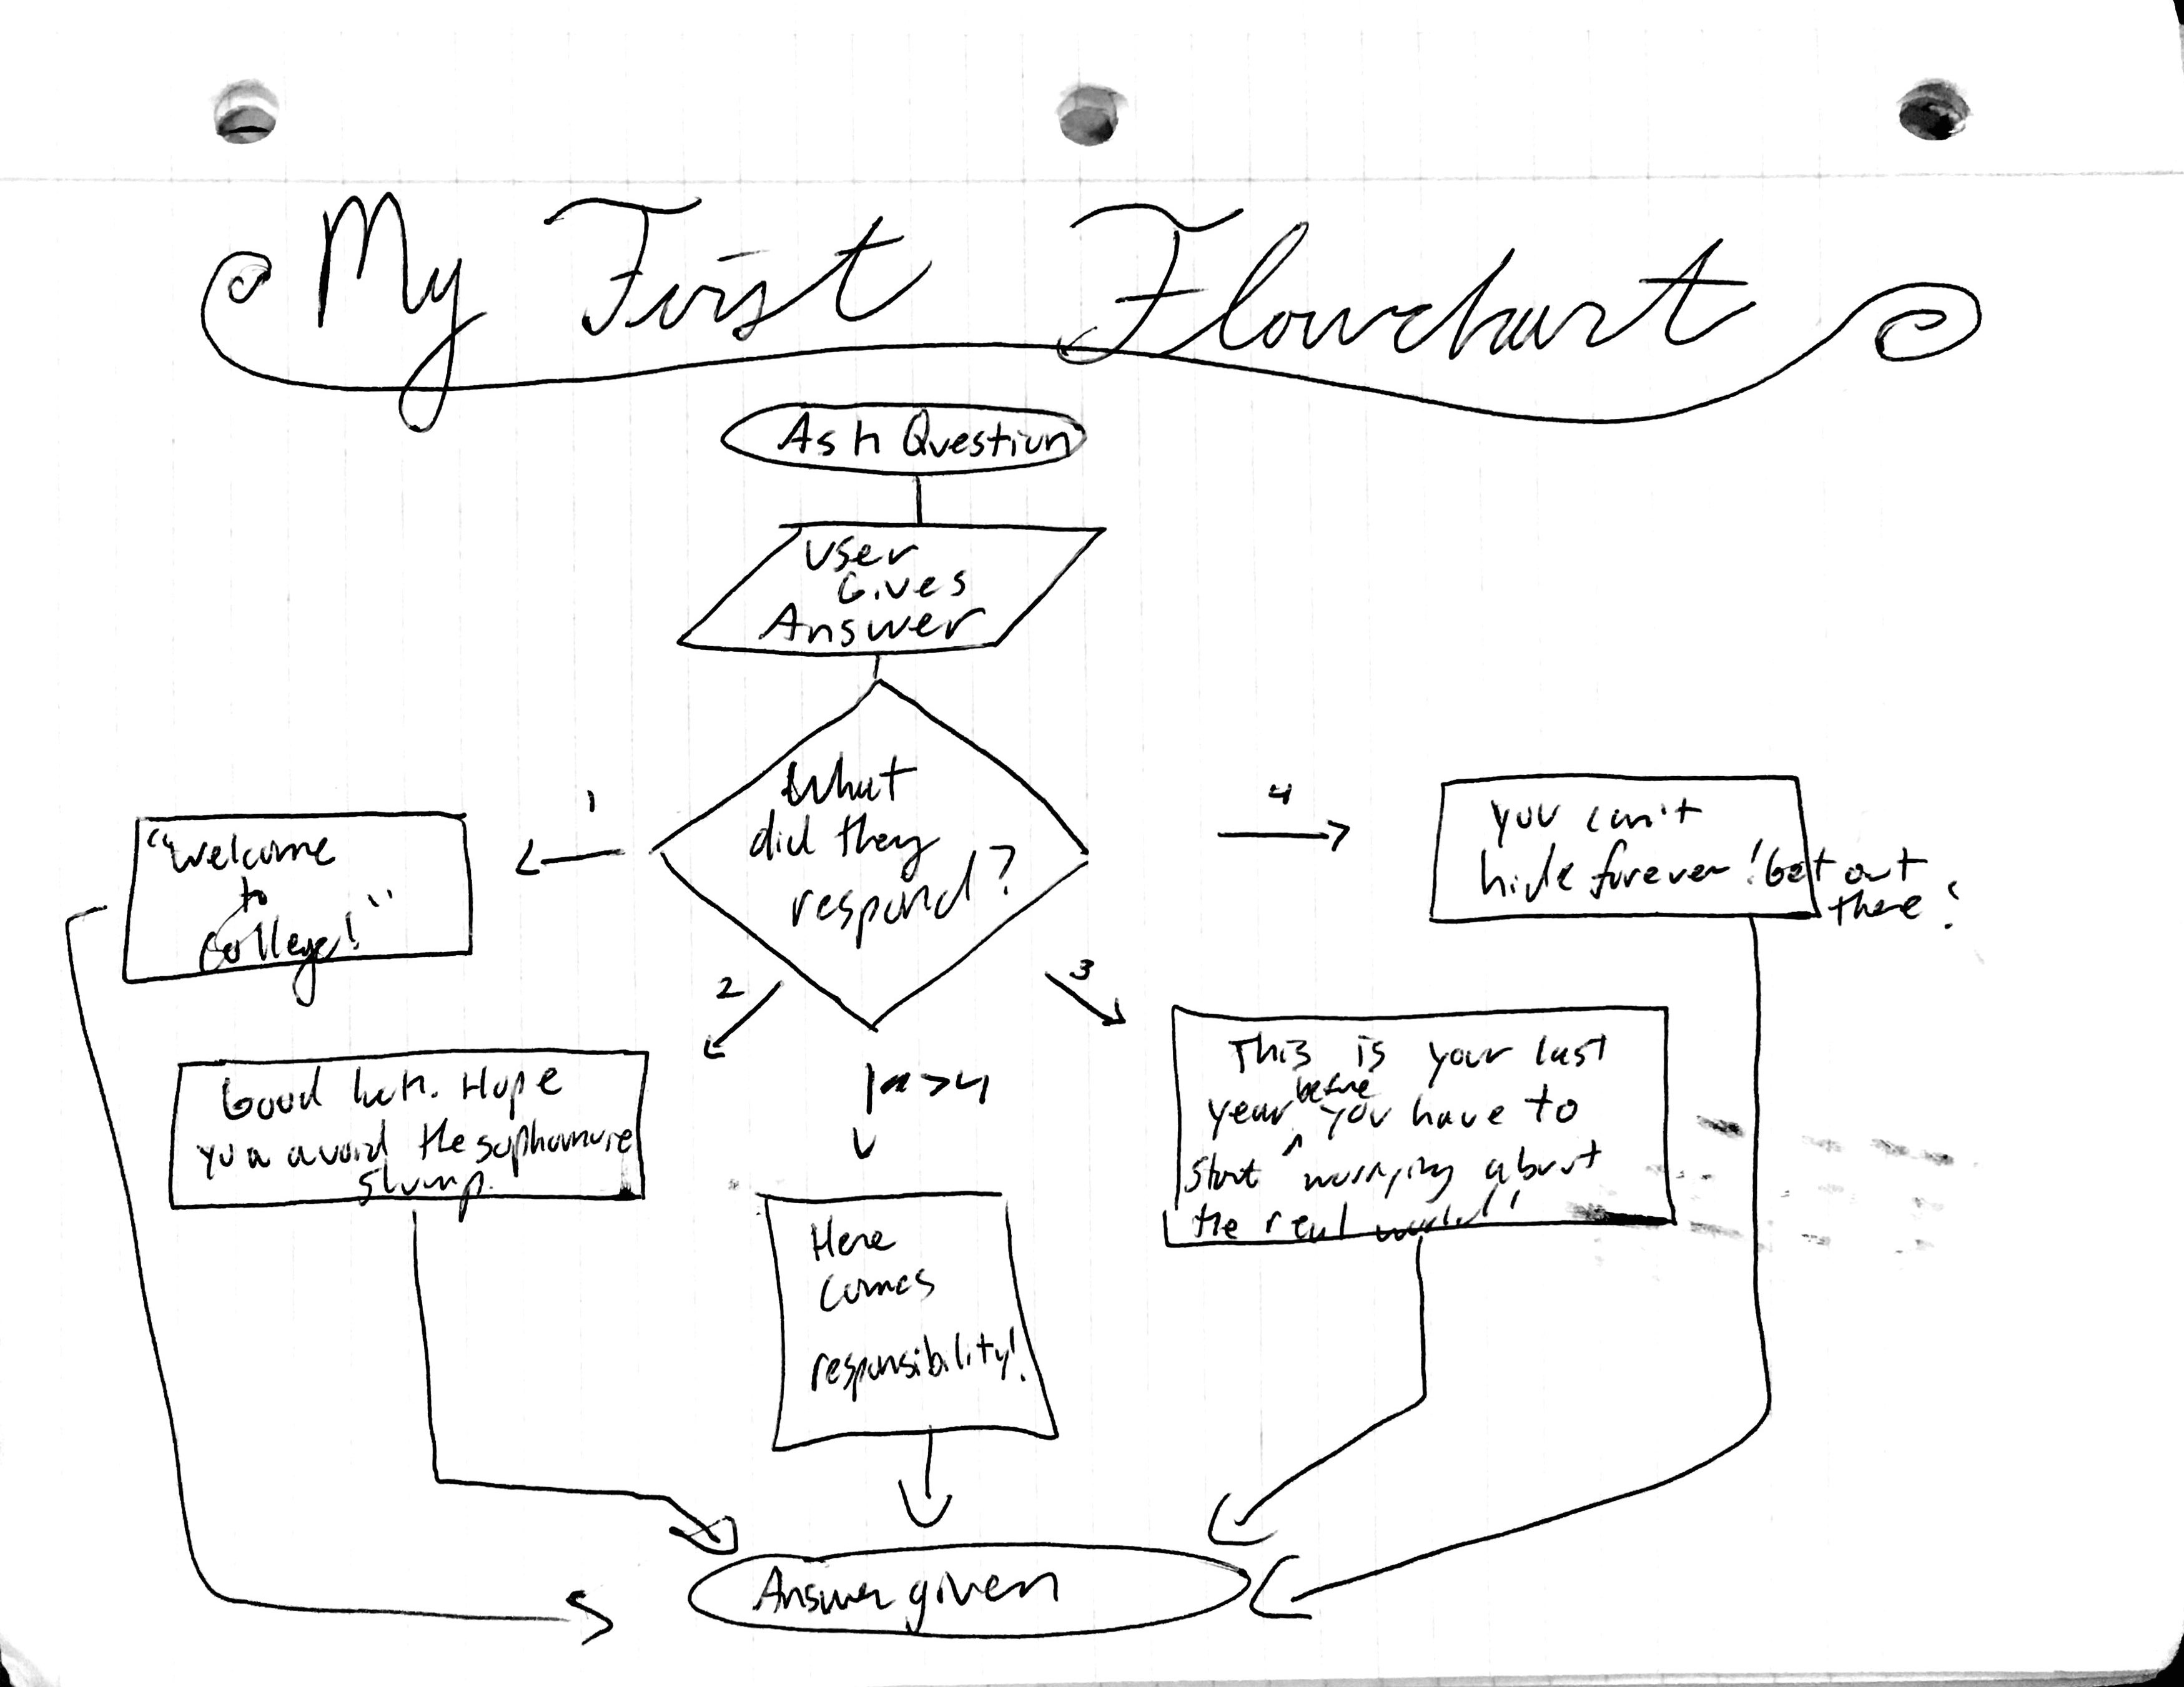 My First Flowchart
Ask Question
User
Gives
Answer
What
did they
respond?
1
"Welcome
to
college!"
2
Good luck. Hope
you avoid the sophomore
slump.
>4
Here
comes
responsibility!
3
This is your last
year before you have to
start worrying about
the real world!
4
you can't
hide forever! Get out
there!
Answer given